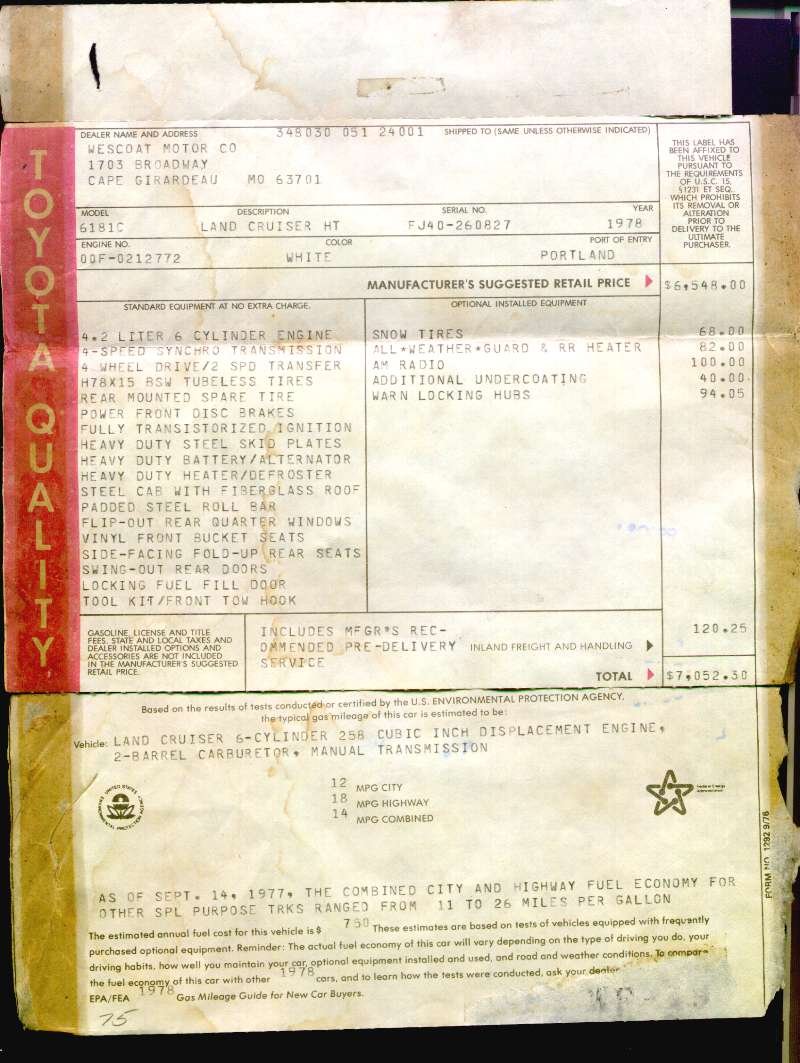 TOYOTA QUALITY
DEALER NAME AND ADDRESS 348030 051 24001 SHIPPED TO (SAME UNLESS OTHERWISE INDICATED)
WESCOAT MOTOR CO
1703 BROADWAY
CAPE GIRARDEAU MO 63701
THIS LABEL HAS
BEEN AFFIXED TO
THIS VEHICLE
PURSUANT TO
THE REQUIREMENTS
OF U.S.C. 15,
§1231 ET SEQ.
WHICH PROHIBITS
ITS REMOVAL OR
ALTERATION
PRIOR TO
DELIVERY TO THE
ULTIMATE
PURCHASER.
MODEL DESCRIPTION SERIAL NO. YEAR
6181C LAND CRUISER HT FJ40-260827 1978
ENGINE NO. COLOR PORT OF ENTRY
00F-0212772 WHITE PORTLAND
MANUFACTURER'S SUGGESTED RETAIL PRICE $6,548.00
STANDARD EQUIPMENT AT NO EXTRA CHARGE. OPTIONAL INSTALLED EQUIPMENT
4.2 LITER 6 CYLINDER ENGINE SNOW TIRES 68.00
4-SPEED SYNCHRO TRANSMISSION ALL*WEATHER*GUARD & RR HEATER 82.00
4 WHEEL DRIVE/2 SPD TRANSFER AM RADIO 100.00
H78X15 BSW TUBELESS TIRES ADDITIONAL UNDERCOATING 40.00
REAR MOUNTED SPARE TIRE WARN LOCKING HUBS 94.05
POWER FRONT DISC BRAKES
FULLY TRANSISTORIZED IGNITION
HEAVY DUTY STEEL SKID PLATES
HEAVY DUTY BATTERY/ALTERNATOR
HEAVY DUTY HEATER/DEFROSTER
STEEL CAB WITH FIBERGLASS ROOF
PADDED STEEL ROLL BAR
FLIP-OUT REAR QUARTER WINDOWS
VINYL FRONT BUCKET SEATS
SIDE-FACING FOLD-UP REAR SEATS
SWING-OUT REAR DOORS
LOCKING FUEL FILL DOOR
TOOL KIT/FRONT TOW HOOK
GASOLINE, LICENSE AND TITLE
FEES, STATE AND LOCAL TAXES AND
DEALER INSTALLED OPTIONS AND
ACCESSORIES ARE NOT INCLUDED
IN THE MANUFACTURER'S SUGGESTED
RETAIL PRICE.
INCLUDES MFGR'S REC-
OMMENDED PRE-DELIVERY
SERVICE
INLAND FREIGHT AND HANDLING 120.25
TOTAL $7,052.30
Based on the results of tests conducted or certified by the U.S. ENVIRONMENTAL PROTECTION AGENCY,
the typical gas mileage of this car is estimated to be:
Vehicle: LAND CRUISER 6-CYLINDER 258 CUBIC INCH DISPLACEMENT ENGINE,
2-BARREL CARBURETOR, MANUAL TRANSMISSION
12 MPG CITY
18 MPG HIGHWAY
14 MPG COMBINED
AS OF SEPT. 14, 1977, THE COMBINED CITY AND HIGHWAY FUEL ECONOMY FOR
OTHER SPL PURPOSE TRKS RANGED FROM 11 TO 26 MILES PER GALLON
The estimated annual fuel cost for this vehicle is $ 750 These estimates are based on tests of vehicles equipped with frequently
purchased optional equipment. Reminder: The actual fuel economy of this car will vary depending on the type of driving you do, your
driving habits, how well you maintain your car, optional equipment installed and used, and road and weather conditions. To compare
the fuel economy of this car with other 1978 cars, and to learn how the tests were conducted, ask your dealer
EPA/FEA 1978 Gas Mileage Guide for New Car Buyers.
75
FORM NO. 1292 9/76